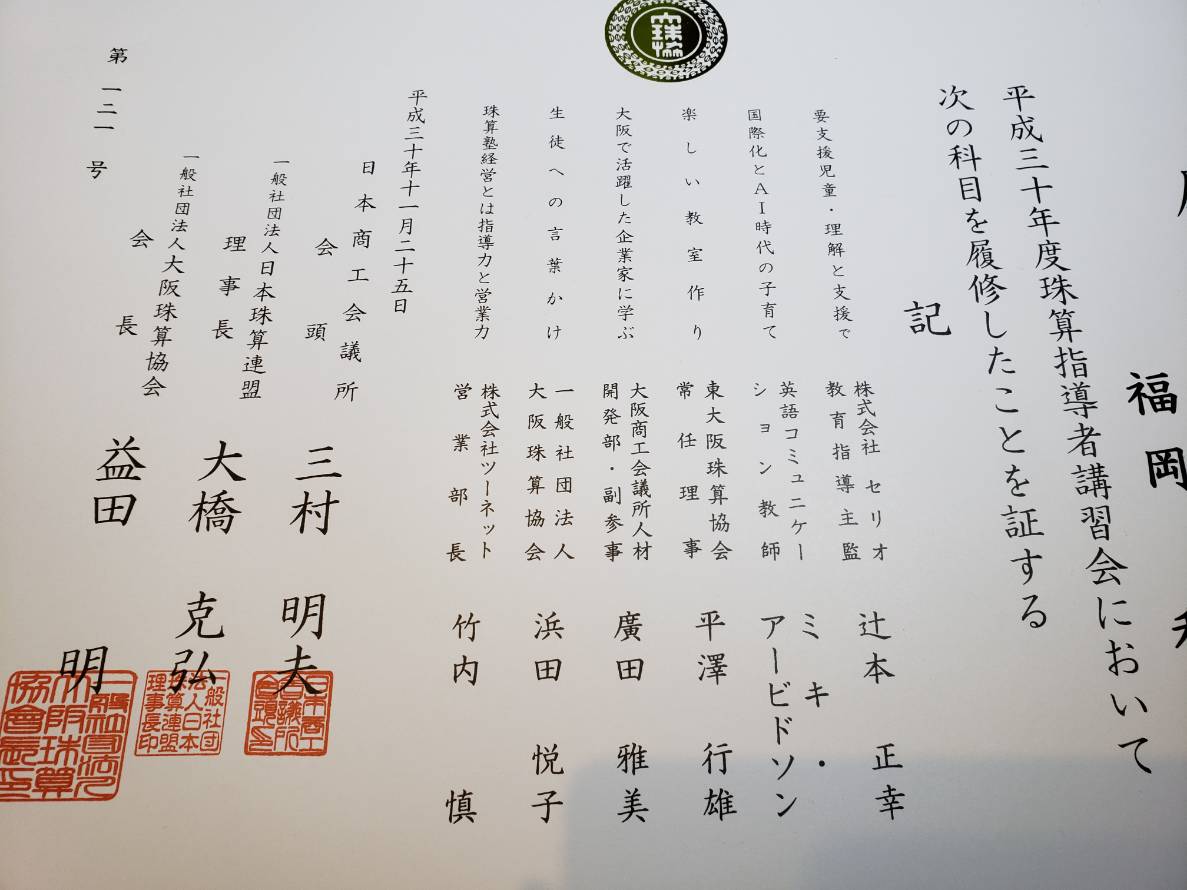 福岡
平成三十年度珠算指導者講習会において
次の科目を履修したことを証する
記
要支援児童・理解と支援で
株式会社 セリオ
教育指導主監
辻本 正幸
国際化とAI時代の子育て
英語コミュニケー
ション教師
ミキ・
アービドソン
楽しい教室作り
東大阪珠算協会
常任理事
平澤 行雄
大阪で活躍した企業家に学ぶ
大阪商工会議所人材
開発部・副参事
廣田 雅美
生徒への言葉かけ
一般社団法人
大阪珠算協会
浜田 悦子
珠算塾経営とは指導力と営業力
株式会社ツーネット
営業部長
竹内 慎
平成三十年十一月二十五日
日本商工会議所
会頭
三村 明夫
一般社団法人日本珠算連盟
理事長
大橋 克弘
一般社団法人大阪珠算協会
会長
益田 明
第一二一号
日本商工
会議所
会頭之印
一般社団
法人日本
珠算連盟
理事長印